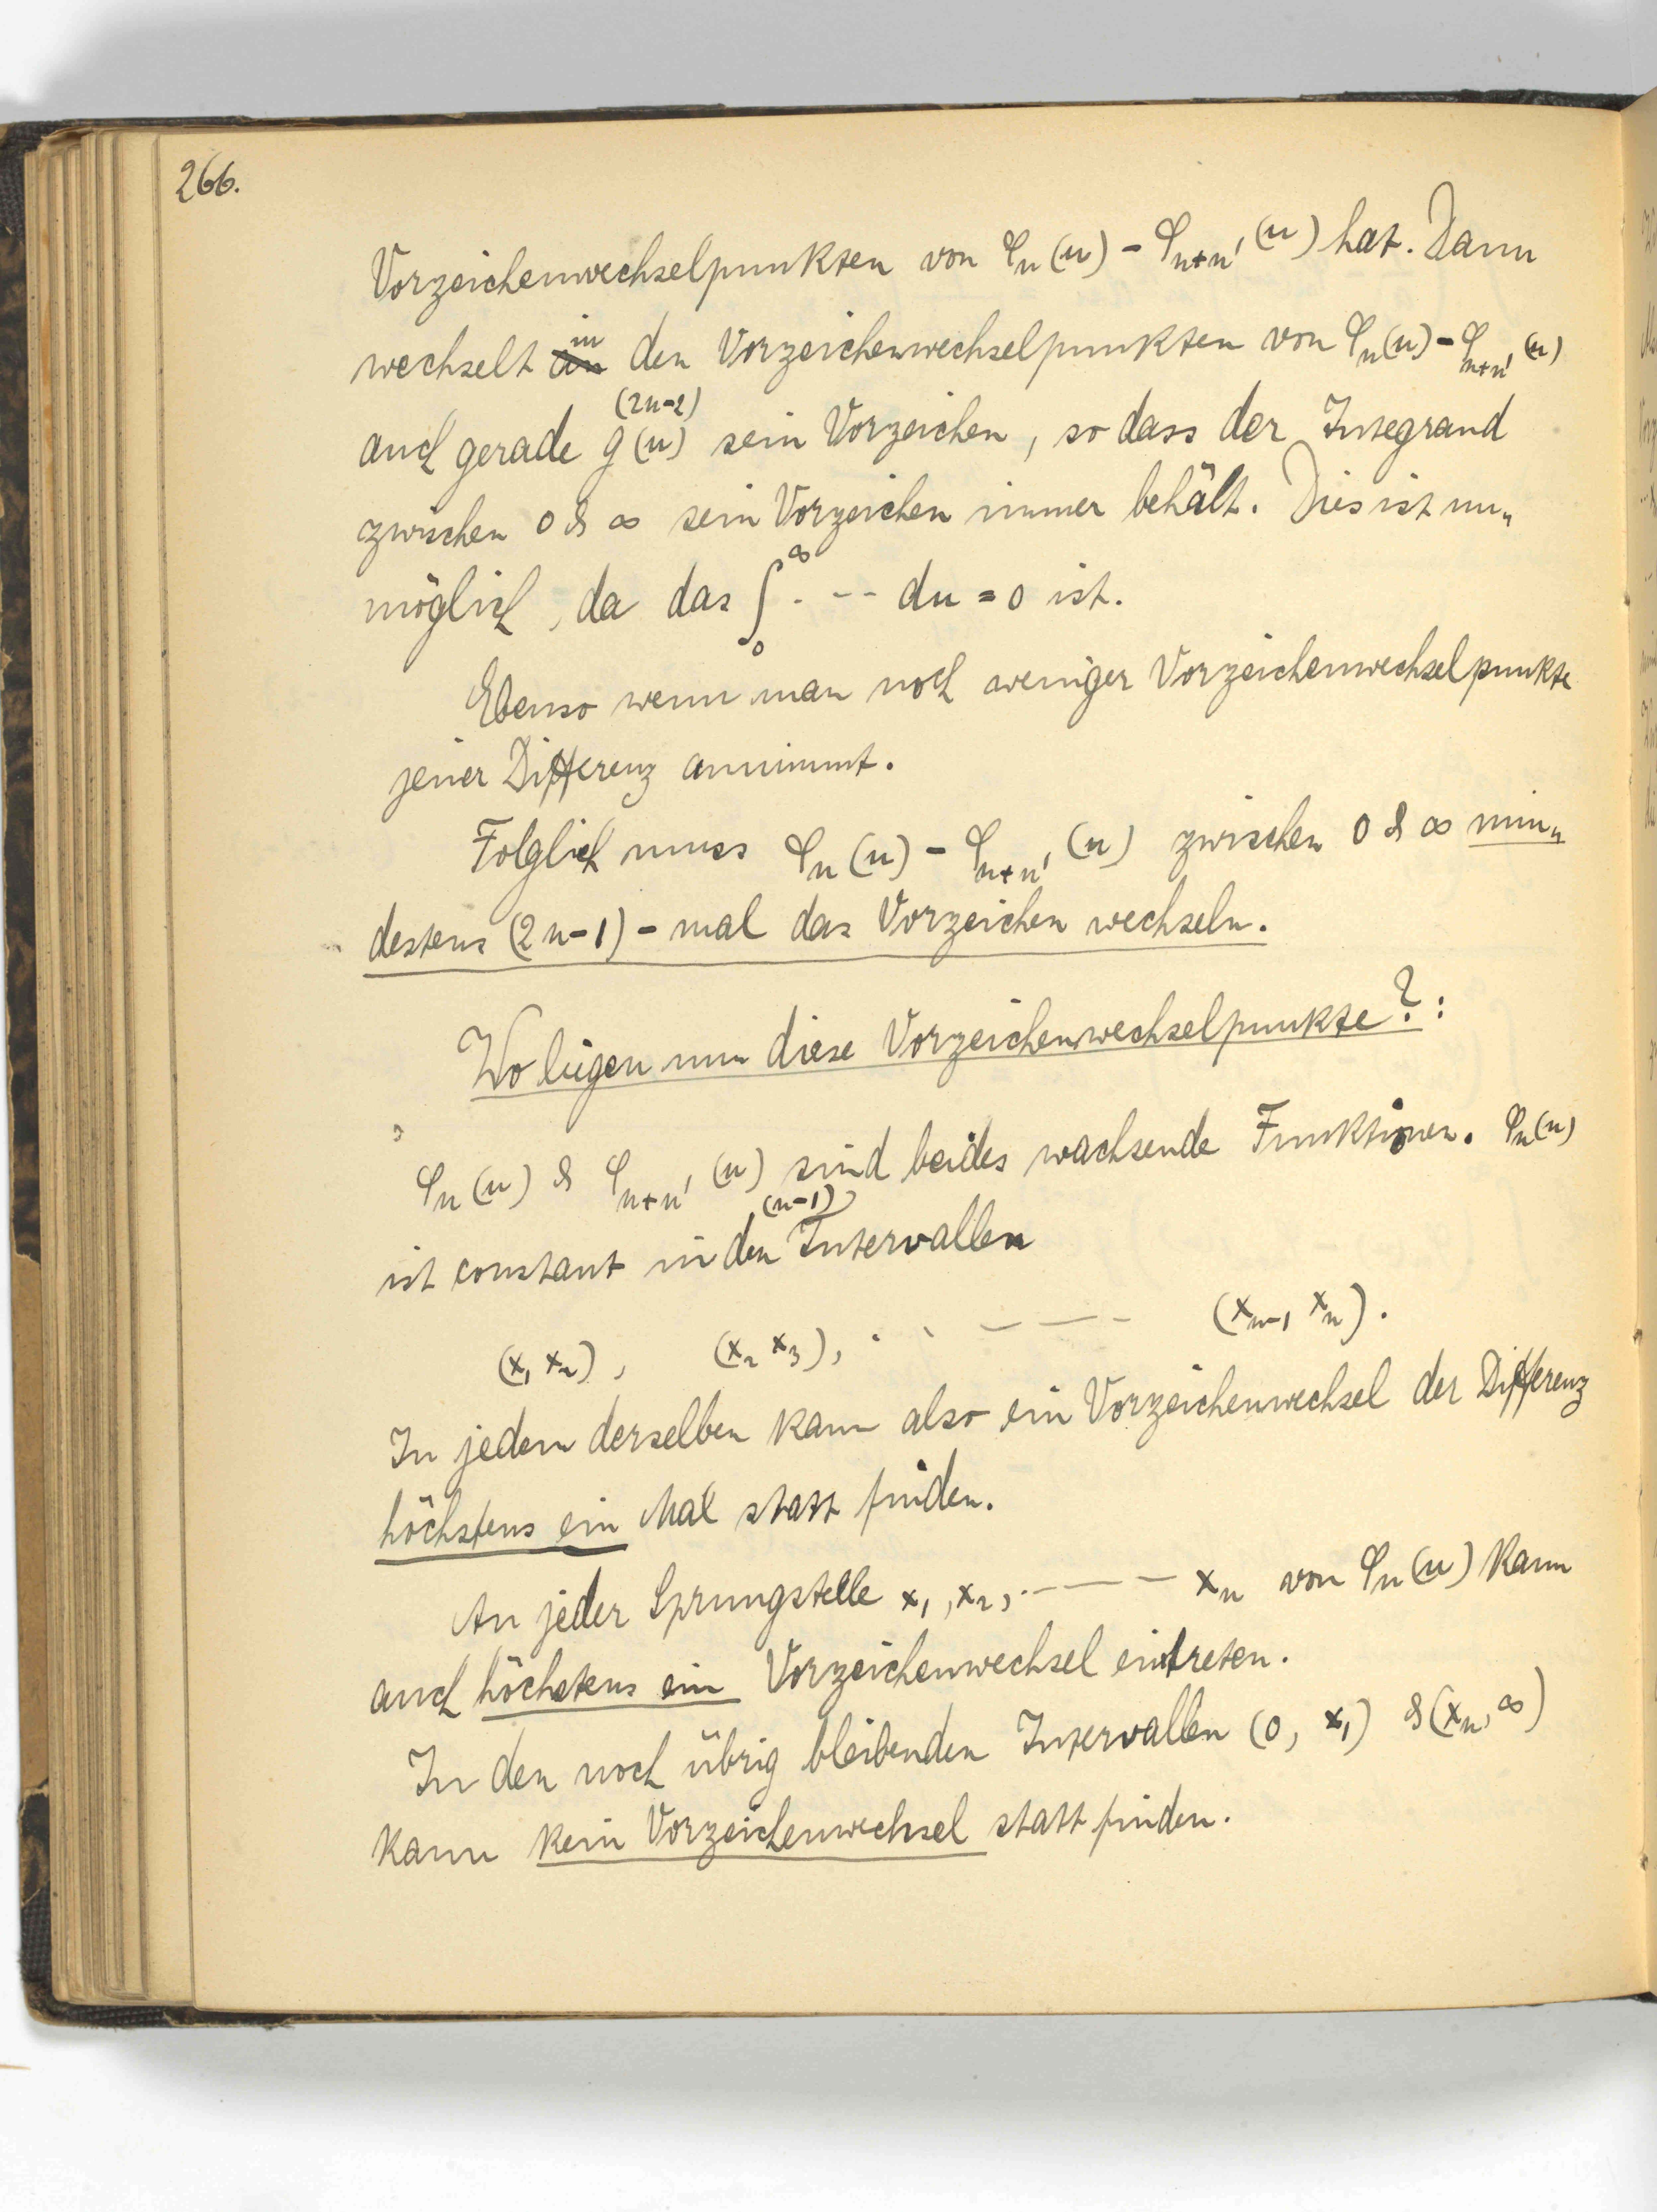 266.
Vorzeichenwechselpunkten von φₙ(u) - φₙ₊ₙ'(u) hat. Dann
wechselt in den Vorzeichenwechselpunkten von φₙ(u) - φₙ₊ₙ'(u)
auch gerade g(u) (2n-2) sein Vorzeichen, so dass der Integrand
zwischen 0 & ∞ sein Vorzeichen immer behält. Dies ist un„
möglich, da das ∫₀^∞ · - - du = 0 ist.
Ebenso wenn man noch weniger Vorzeichenwechselpunkte
jener Differenz annimmt.
Folglich muss φₙ(u) - φₙ₊ₙ'(u) zwischen 0 & ∞ min„
destens (2n-1)-mal das Vorzeichen wechseln.
Wo liegen nun diese Vorzeichenwechselpunkte?:
φₙ(u) & φₙ₊ₙ'(u) sind beides wachsende Funktionen. φₙ(u)
ist constant in den (n-1) Intervallen
(x₁ x₂), (x₂ x₃), · · - — - (xₙ₋₁ xₙ).
In jedem derselben kann also ein Vorzeichenwechsel der Differenz
höchstens ein Mal statt finden.
An jeder Sprungstelle x₁, x₂, · - — - xₙ von φₙ(u) kann
auch höchstens ein Vorzeichenwechsel eintreten.
In den noch übrig bleibenden Intervallen (0, x₁) & (xₙ, ∞)
kann kein Vorzeichenwechsel statt finden.